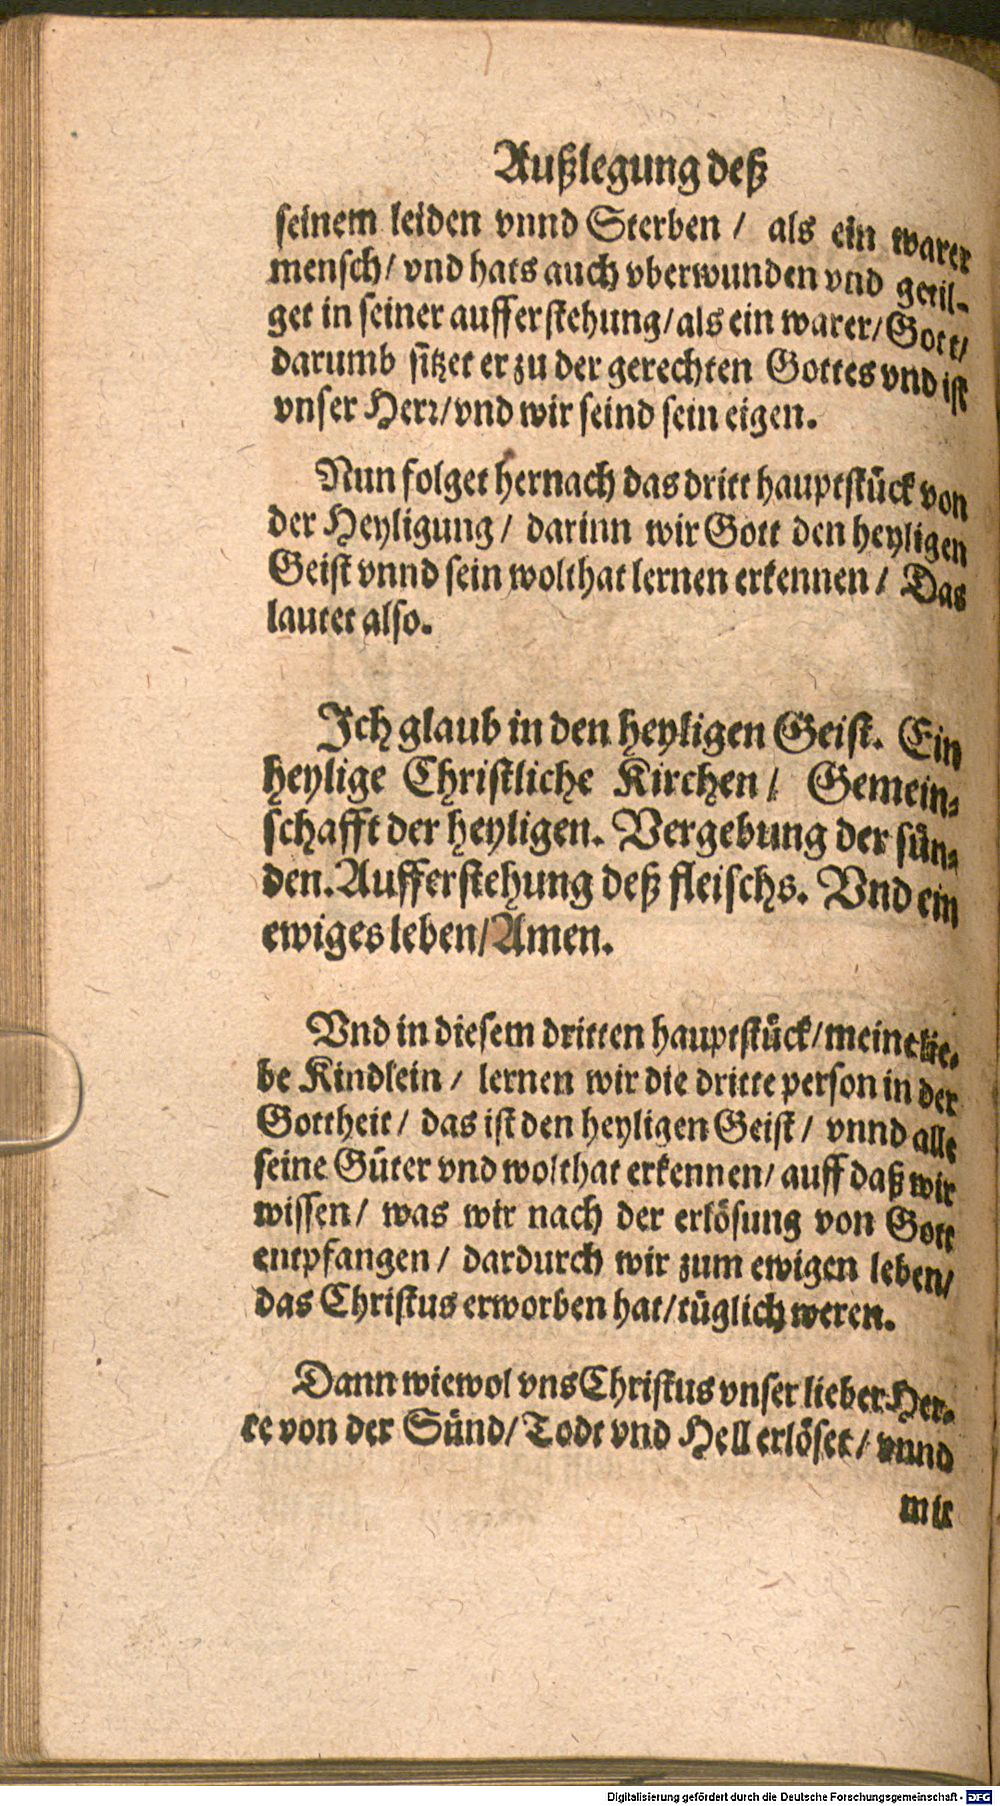 Außlegung deß
seinem leiden vnnd Sterben / als ein warer
mensch / vnd hats auch vberwunden vnd getil-
get in seiner aufferstehung / als ein warer / Gott /
darumb sitzet er zu der gerechten Gottes vnd ist
vnser Herr / vnd wir seind sein eigen.
Nun folget hernach das dritt hauptstück von
der Heyligung / darinn wir Gott den heyligen
Geist vnnd sein wolthat lernen erkennen / Das
lautet also.
Ich glaub in den heyligen Geist. Ein
heylige Christliche Kirchen / Gemein-
schafft der heyligen. Vergebung der sün-
den. Aufferstehung deß fleischs. Vnd ein
ewiges leben / Amen.
Vnd in diesem dritten hauptstück / meine lie-
be Kindlein / lernen wir die dritte person in der
Gottheit / das ist den heyligen Geist / vnnd alle
seine Güter vnd wolthat erkennen / auff daß wir
wissen / was wir nach der erlösung von Gott
entpfangen / dardurch wir zum ewigen leben /
das Christus erworben hat / tüglich weren.
Dann wiewol vns Christus vnser lieber Her-
re von der Sünd / Todt vnd Hell erlöset / vnnd
mit
Digitalisierung gefördert durch die Deutsche Forschungsgemeinschaft - DFG